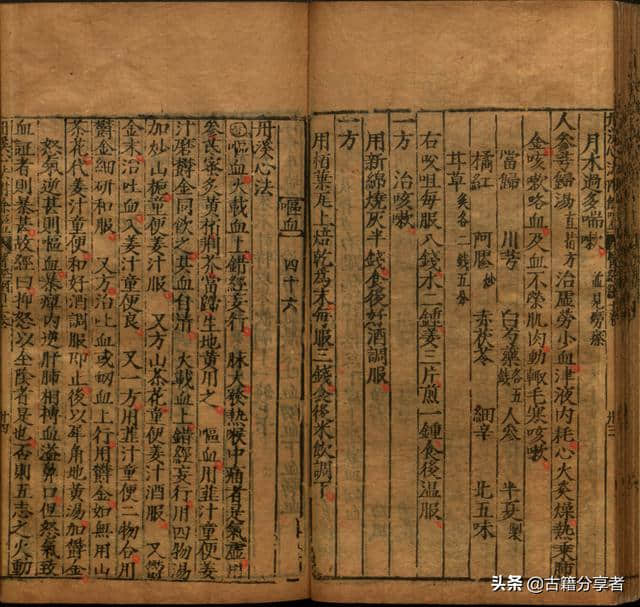 月水過多喘嗽 孟見勞瘵
人參芎歸湯 直指方 治虛勞小血津液內耗心火炎燥熱乘肺
金咳嗽咯血及血不榮肌肉動輒毛寒咳嗽
當歸 川芎 白芍藥 各五 人參 半夏製
橘紅 阿膠炒 赤茯苓 細辛 北五味
甘草 炙各二錢五分
右㕮咀每服八錢水二鍾姜三片煎一鍾食後溫服
一方 治咳嗽
用新綿燒灰半錢食後好酒調服
一方
用栢葉瓦上焙乾為末每服三錢食後米飲調下
嘔血 四十六
丹溪心法
嘔血火載血上錯經妄行 脉大發熱喉中痛者是氣虛用
參芪蜜炙黃栢荊芥當歸生地黃用之 嘔血用韭汁童便姜
汁磨欝金同飲之其血自清 火載血上錯經妄行用四物湯
加炒山梔童便姜汁服 又方山茶花童便姜汁酒服 又欝
金末治吐血入姜汁童便良 又一方用韭汁童便二物合用
欝金細研和服 又方治吐血或衂血上行用欝金如無用山
茶花代姜汁童便和好酒調服即止後以犀角地黃湯加欝金
怒氣逆甚則嘔血暴癉內逆肝肺相搏血溢鼻口但怒氣致
血証者則暴甚故經曰抑怒以全陰者是也否則五志之火動
卅三
卅四
头条 @古籍分享者